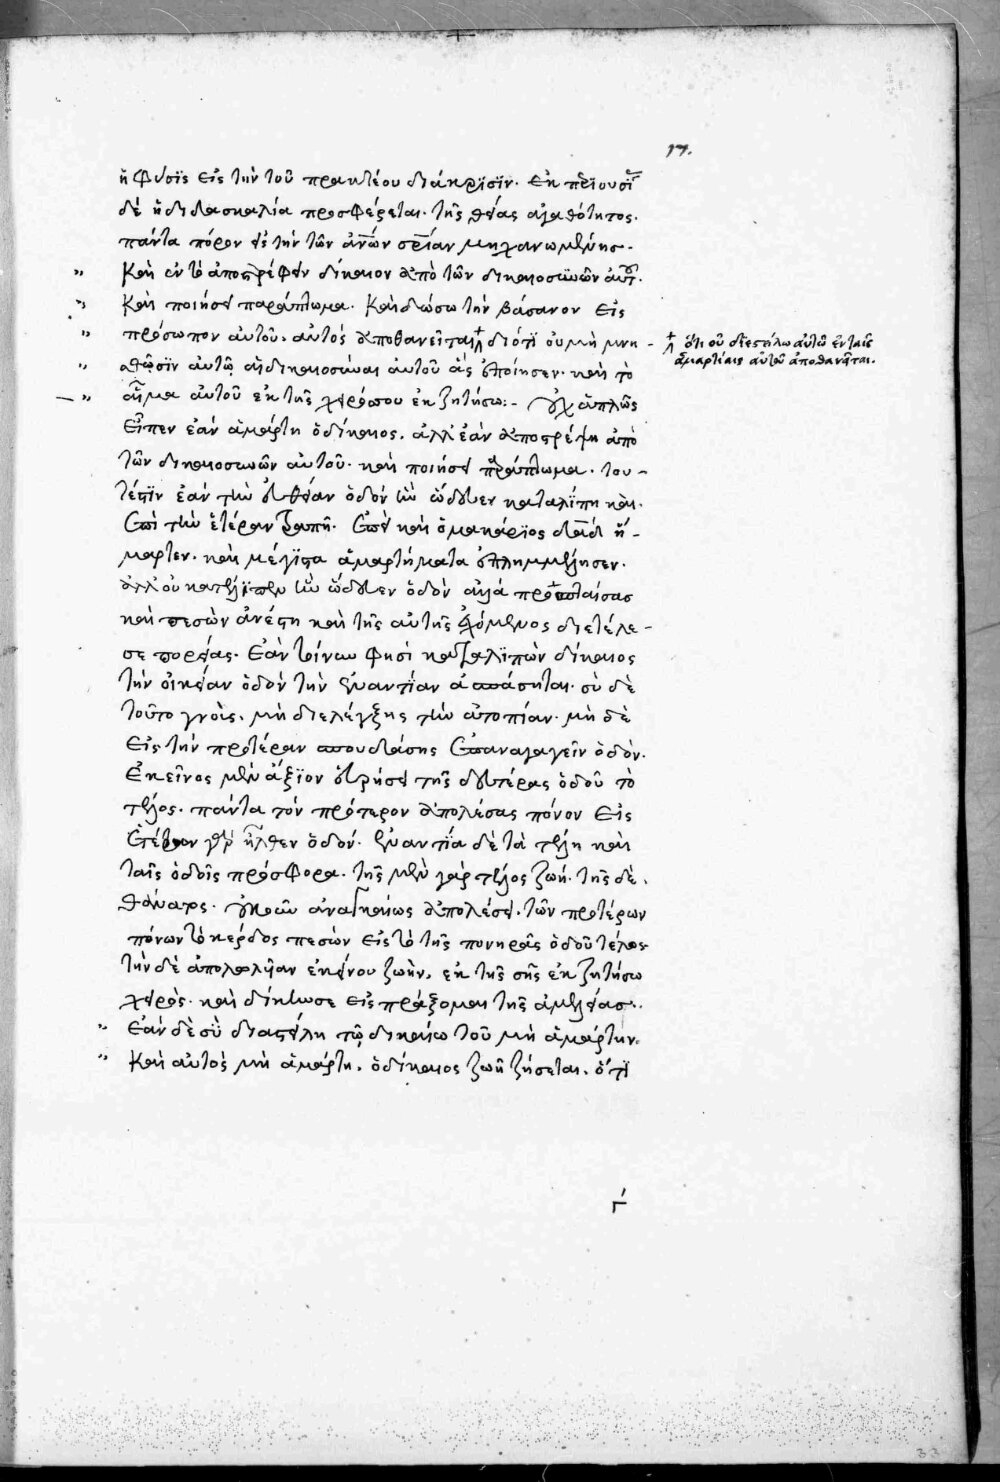 17.
ἡ φύσϊς εἰς τὴν τοῦ πρακτέου διάκρϊσϊν. ἐκ
δὲ ἡ διδασκαλία προσφέρεται. τῆς θείας ἀγαθότητος.
πάντα πόρον εἰς τὴν τῶν ἀνῶν σρίαν μηχανωμένης.
" Καὶ ἐν τῶ ἀποστρέφειν δίκαιον ἀπὸ τῶν δικαιοσυνῶν αὐτοῦ.
" Καὶ ποιήσει παράπτωμα. Καὶ δώσω τὴν βάσανον εἰς
" πρόσωπον αὐτοῦ. αὐτὸς ἀποθανεῖται διότι οὐ μὴ μνη -
ὅτι οὐ διεστείλω αὐτῶ ἐν ταῖς
ἁμαρτίαις αὐτοῦ ἀποθανεῖται.
" σθῶσϊν αὐτῶ αἱ δικαιοσύναι αὐτοῦ ἃς ἐποίησεν. καὶ τὸ
" αἷμα αὐτοῦ ἐκ τῆς χειρός σου ἐκζητήσω:- οὐχ ἁπλῶς
εἶπεν ἐὰν ἁμάρτη ὁ δίκαιος. ἀλλ' ἐὰν ἀποστρέψη ἀπὸ
τῶν δικαιοσυνῶν αὐτοῦ. καὶ ποιήσει παράπτωμα. του -
τέστϊν ἐὰν τὴν εὐθεῖαν ὁδὸν ἣν ὥδευεν καταλίπη καὶ.
ἐπὶ τὴν ἑτέραν τραπῆ. ἐπεὶ καὶ ὁ μακάρϊος δαδ ἥ -
μαρτεν. καὶ μέγϊστα ἁμαρτήματα ἐπλημμέλησεν.
ἀλλ' οὐ κατέλϊπεν ἣν ὥδευεν ὁδὸν ἀλλὰ προσπταίσας
καὶ πεσὼν ἀνέστη καὶ τῆς αὐτῆς ἐχόμενος διετέλε -
σε πορείας. Ἐὰν τοίνυν φησὶ καταλϊπὼν δίκαιος
τὴν οἰκείαν ὁδὸν τὴν ἐναντϊαν ἀσπάσηται. σὺ δὲ
τοῦτο γνοὺς. μὴ διελέγξης τὴν ἀτοπίαν. μὴ δὲ
εἰς τὴν προτέραν σπουδάσης ἐπαναγαγεῖν ὁδὸν.
ἐκεῖνος μὲν ἄξϊον εὑρήσει τῆς δευτέρας ὁδοῦ τὸ
τέλος. πάντα τὸν πρότερον ἀπολέσας πόνον εἰς
ἑτέραν γὰρ ἦλθεν ὁδόν. ἐναντϊα δὲ τὰ τέλη καὶ
ταῖς ὁδοῖς πρόσφορα. τῆς μὲν γὰρ τέλος ζωὴ. τῆς δὲ.
θάνατος. οὐκοῦν ἀναγκαίως ἀπολέσει. τῶν προτέρων
πόνων τὸ κέρδος πεσὼν εἰς τὸ τῆς πονηρᾶς ὁδοῦ τέλος
τὴν δὲ ἀπολωλυῖαν ἐκείνου ζωὴν. ἐκ τῆς σῆς ἐκζητήσω
χειρὸς. καὶ δίκας σε εἰσπράξομαι τῆς ἀμελείας.
" Ἐὰν δὲ σὺ διαστείλη τῶ δικαίω τοῦ μὴ ἁμάρτην.
" Καὶ αὐτὸς μὴ ἁμάρτη. ὁ δίκαιος ζωῆ ζήσεται. ὅτϊ
Γ'
33